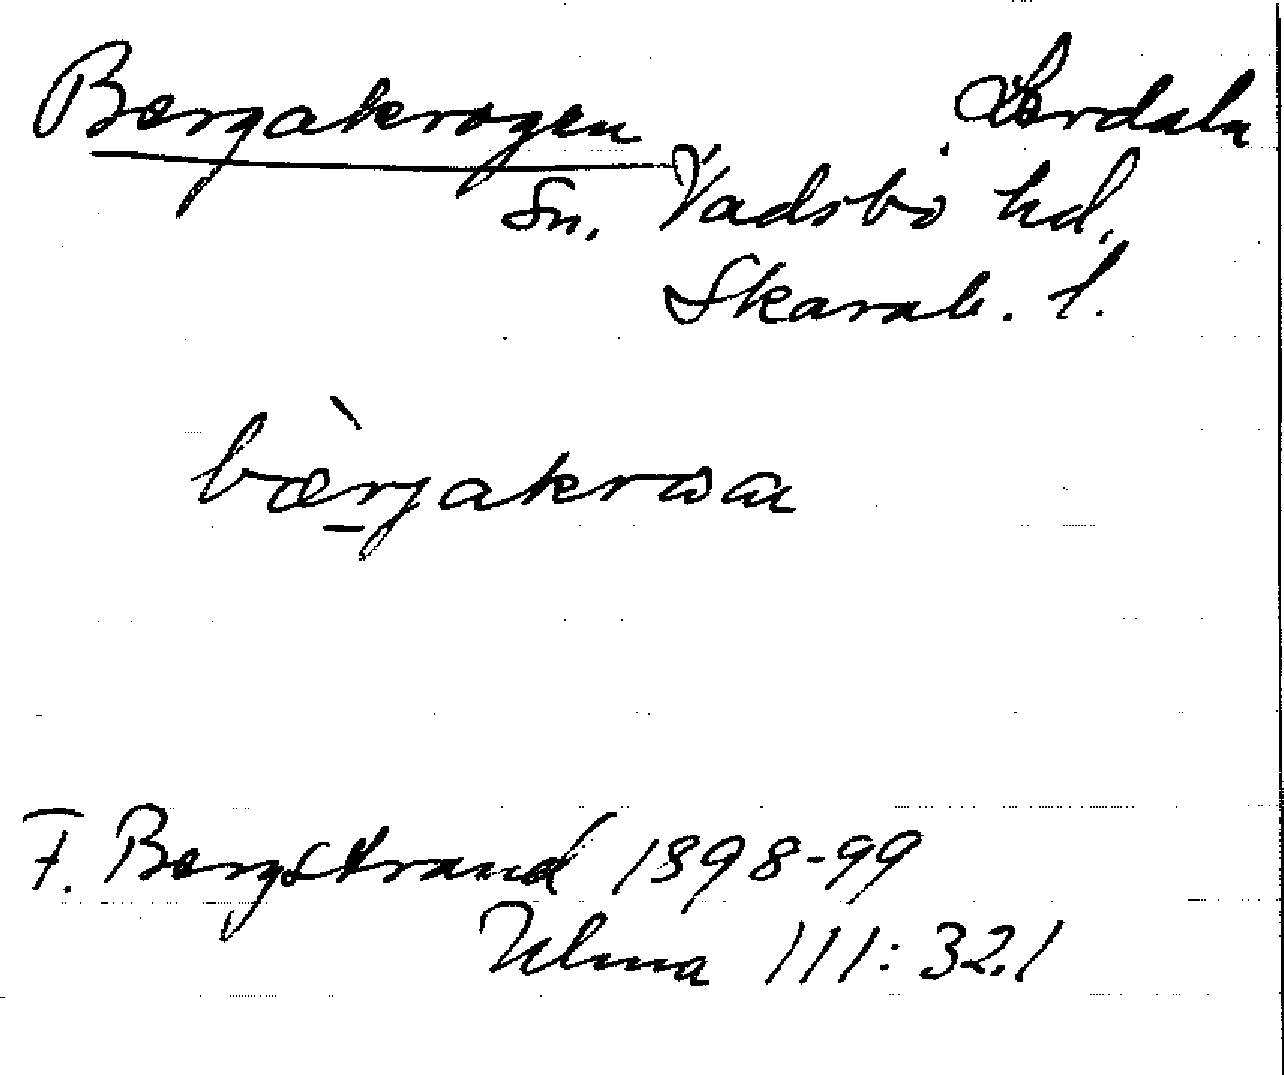 Bergakrogen Lerdala
Sn. Vadsbo hd.
Skarab. l.
bæ̀rjakrωa
F. Bergstrand 1898-99
Ulma 111:32.1